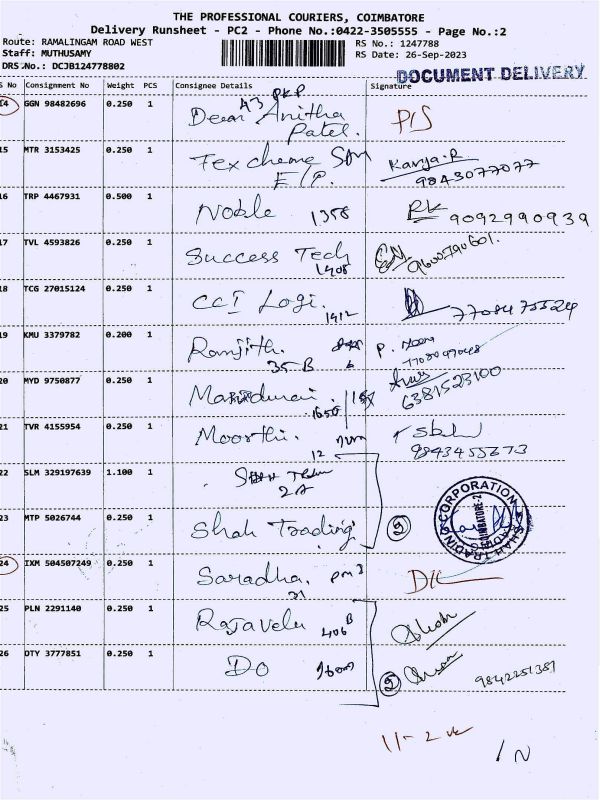 THE PROFESSIONAL COURIERS, COIMBATORE
Delivery Runsheet - PC2 - Phone No.:0422-3505555 - Page No.:2
Route: RAMALINGAM ROAD WEST RS No.: 1247788
Staff: MUTHUSAMY RS Date: 26-Sep-2023
DRS No.: DCJB124778802 DOCUMENT DELIVERY
S No Consignment No Weight PCS Consignee Details Signature
A3 PKP
14 GGN 98482696 0.250 1 Dear Anitha
Patel.
15 MTR 3153425 0.250 1 Tex cheme Kavya.R
E/P. 9843077077
16 TRP 4467931 0.500 1 Noble 1358 RK 9092990939
17 TVL 4593826 0.250 1 Success Tech 9600790601.
1408
18 TCG 27015124 0.250 1 CCI Logi.
1412
19 KMU 3379782 0.200 1 Ranjith. P.
35-B
20 MYD 9750877 0.250 1 6381523100
1650
21 TVR 4155954 0.250 1 Moorthi.
12 9843455673
22 SLM 329197639 1.100 1
2A
23 MTP 5026744 0.250 1 Shah Trading 2
SHAH TRADING CORPORATION
COIMBATORE-2
24 IXM 504507249 0.250 1 Saradha.
21
25 PLN 2291140 0.250 1 Rajavelu 406 B
26 OTY 3777851 0.250 1 Do 2 9842251387
11-2
/ N